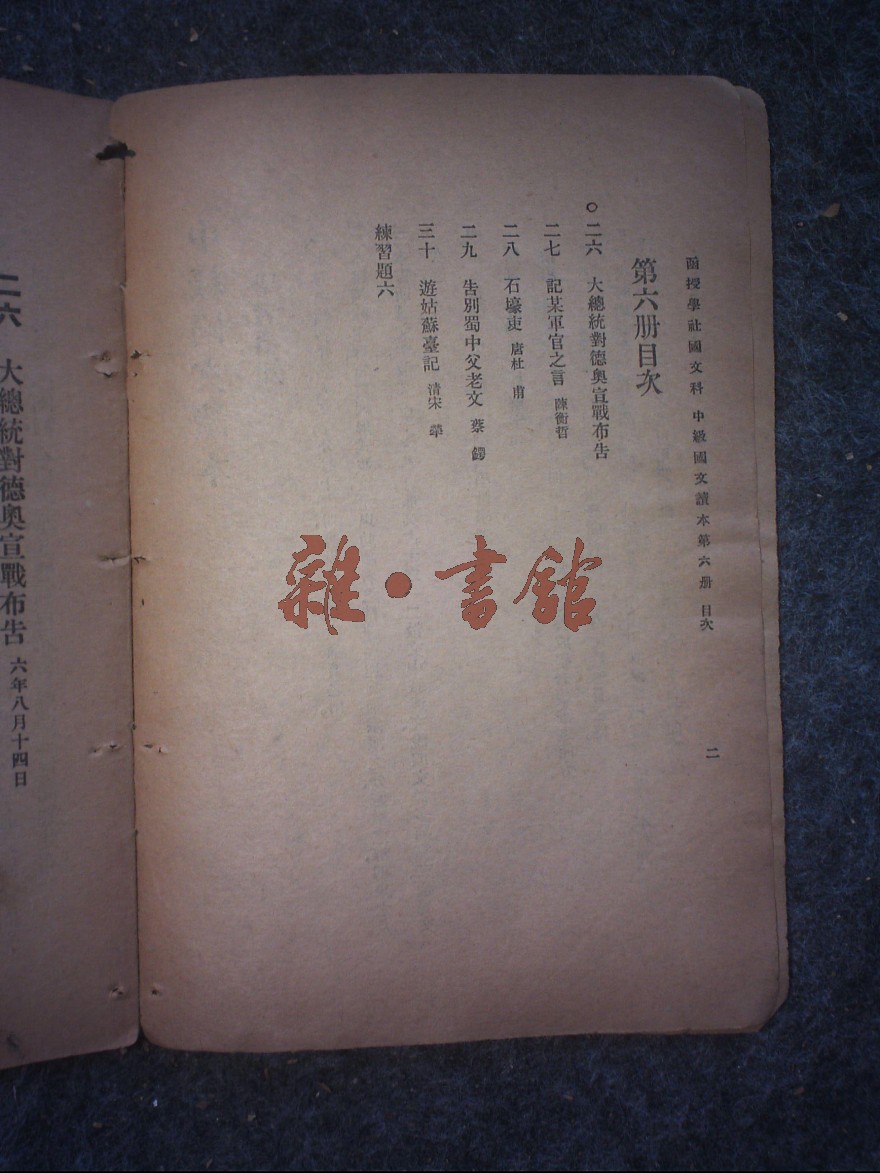 函授學社國文科 中級國文讀本第六册 目次 二
第六册目次
○二六 大總統對德奧宣戰布告
二七 記某軍官之言 陳衡哲
二八 石壕吏 唐杜甫
二九 告別蜀中父老文 蔡鍔
三十 遊姑蘇臺記 清宋犖
練習題六
二六 大總統對德奧宣戰布告 六年八月十四日
雜·書館